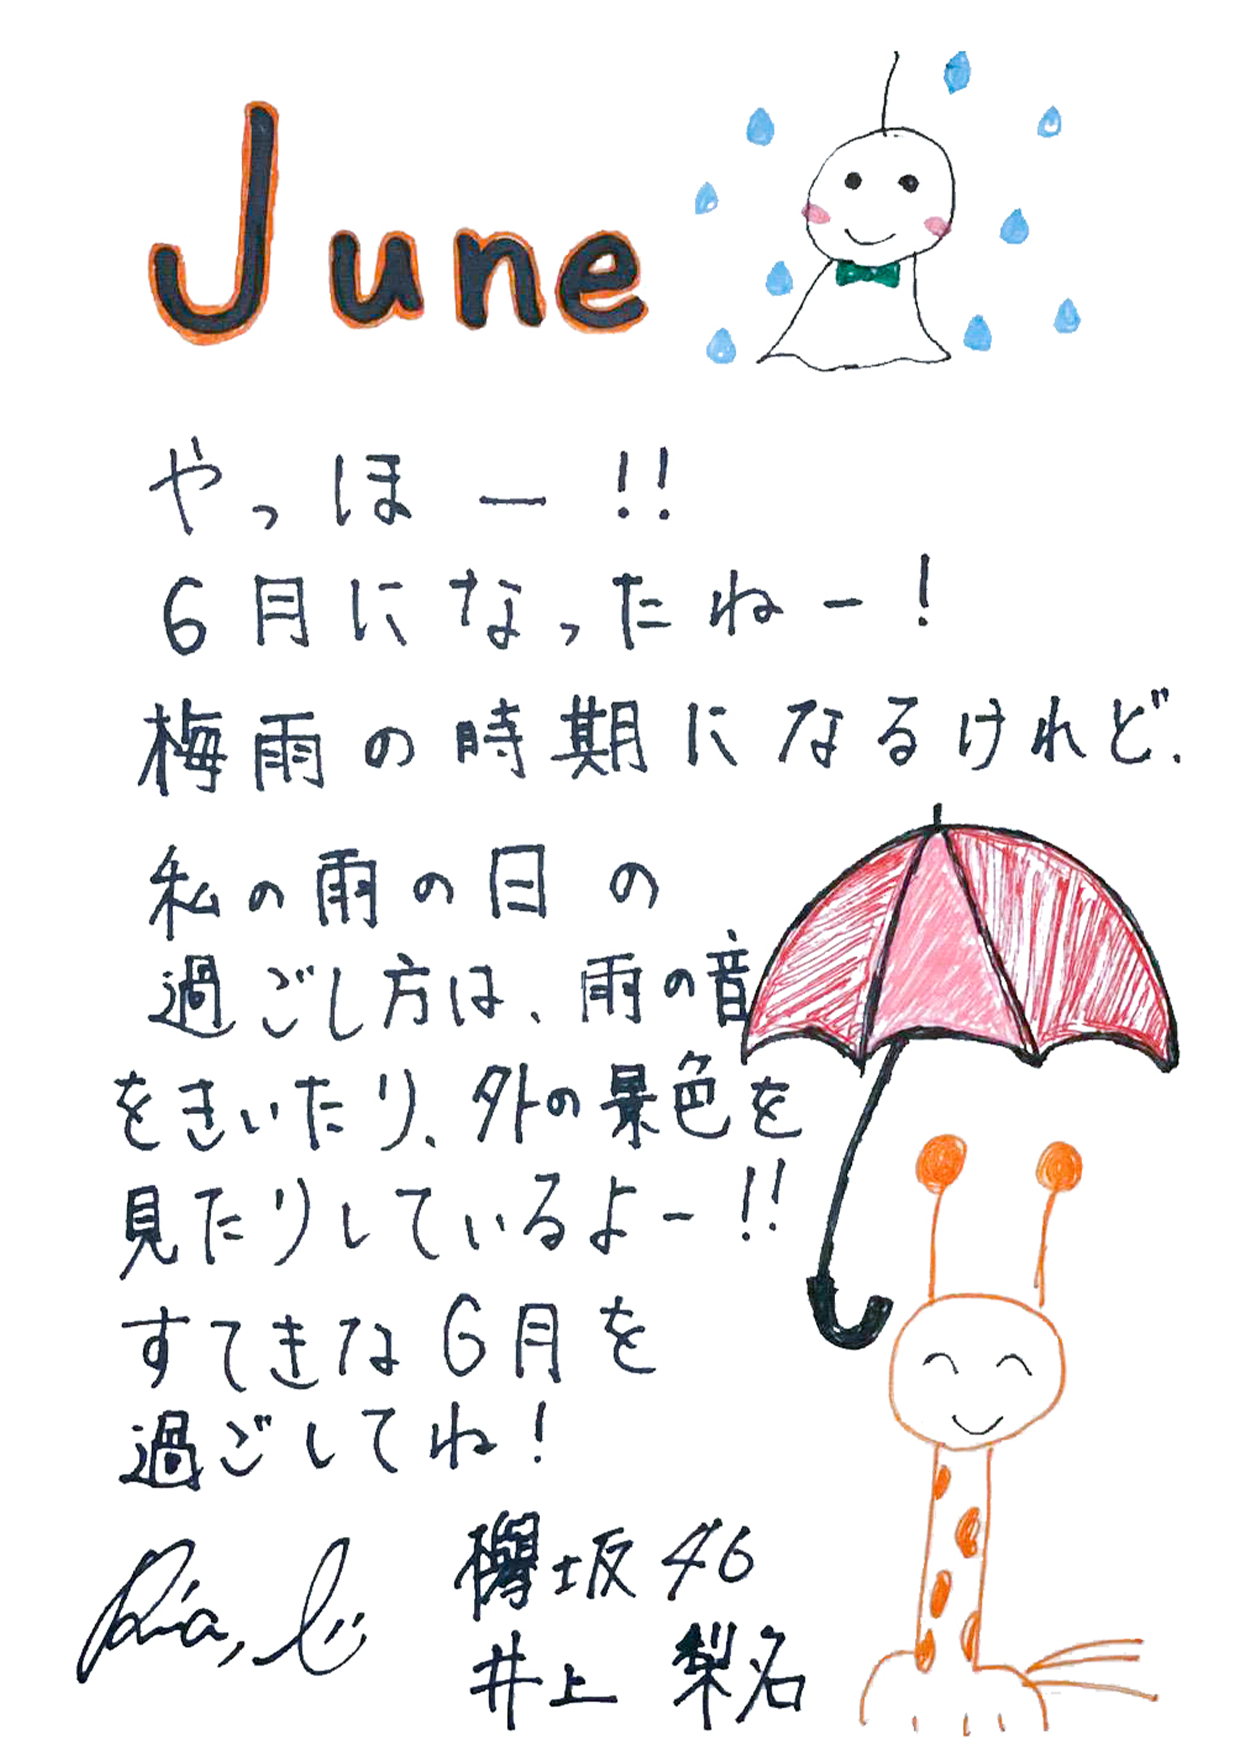 June
やっほー!!
6月になったねー!
梅雨の時期になるけれど、
私の雨の日の
過ごし方は、雨の音
をきいたり、外の景色を
見たりしているよー!!
すてきな6月を
過ごしてね!
欅坂46
井上 梨名